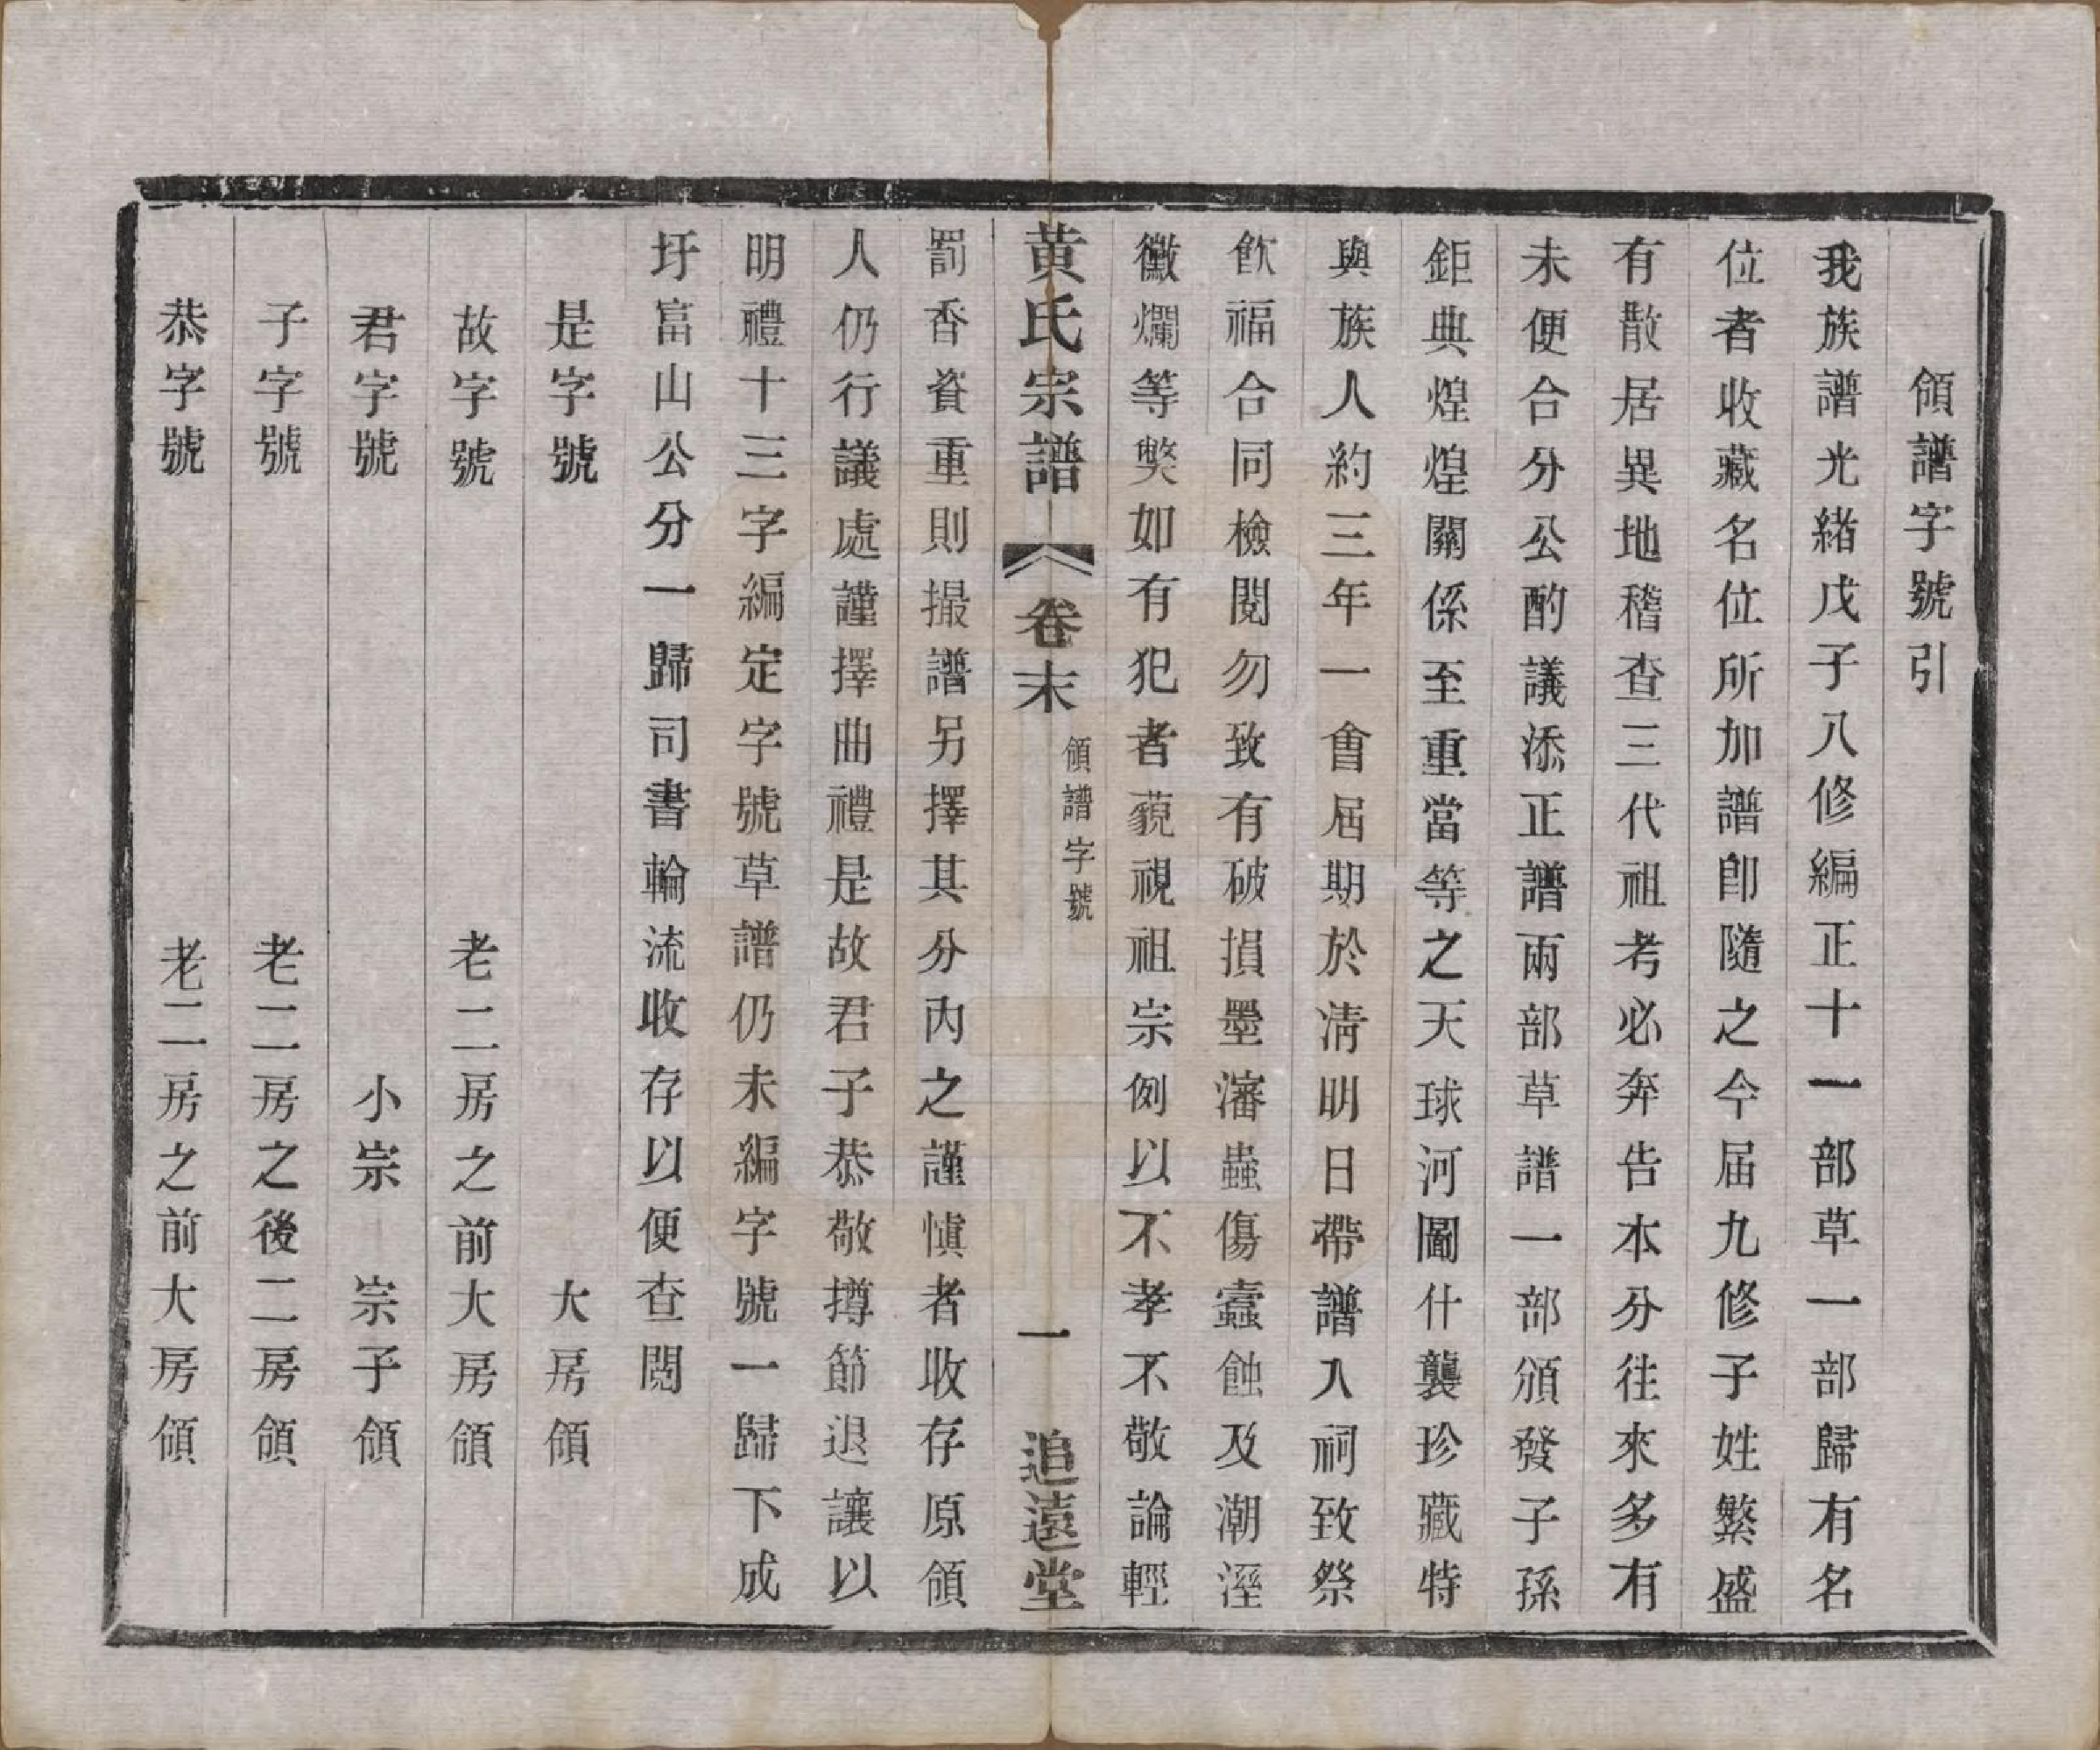 領譜字號引
我族譜光緒戊子八修編正十一部草一部歸有名
位者收藏名位所加譜卽隨之今届九修子姓繁盛
有散居異地稽查三代祖考必奔告本分往來多有
未便合分公酌議添正譜兩部草譜一部頒發子孫
鉅典煌煌關係至重當等之天球河圖什襲珍藏特
與族人約三年一會屆期於淸明日帶譜入祠致祭
飮福合同檢閱勿致有破損墨瀋蟲傷蠹蝕及潮溼
黴爛等獘如有犯者藐視祖宗例以不孝不敬論輕
黃氏宗譜 卷末 領譜字號 一 追遠堂
罰香資重則撮譜另擇其分內之謹愼者收存原領
人仍行議處謹擇曲禮是故君子恭敬撙節退讓以
明禮十三字編定字號草譜仍未編字號一歸下成
圩富山公分一歸司書輪流收存以便查閱
是字號 大房領
故字號 老二房之前大房領
君字號 小宗 宗子領
子字號 老二房之後二房領
恭字號 老二房之前大房領